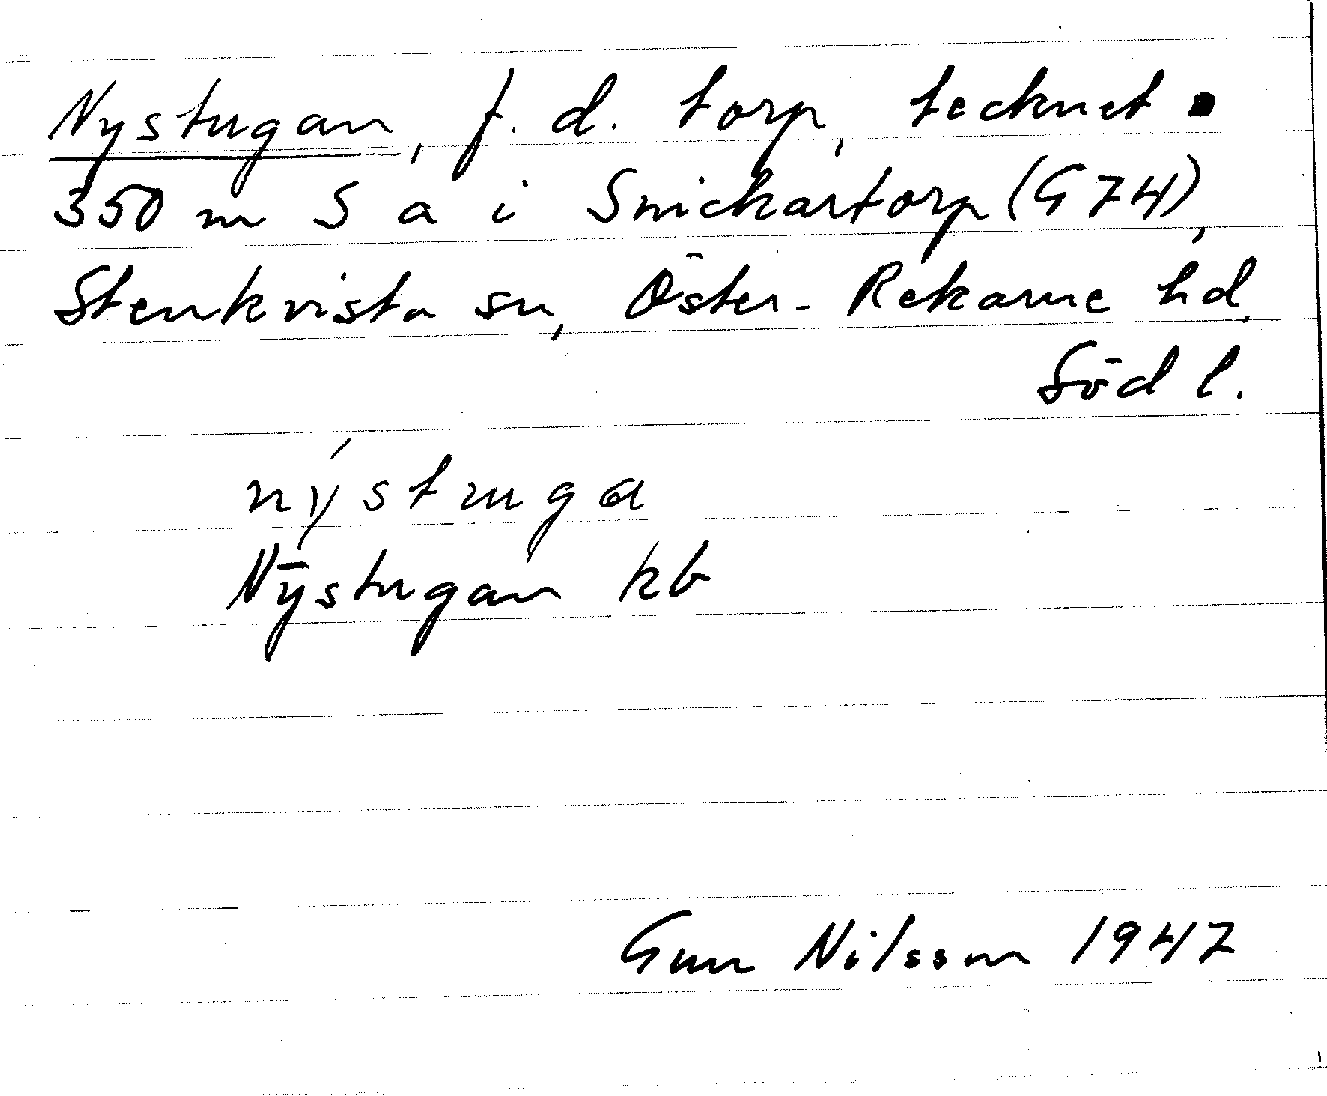 Nystugan, f. d. torp, tecknet ▪
350 m S a i Snickartorp (G74),
Stenkvista sn, Öster-Rekarne hd.
Södl.
nýstuga
Nȳstugan kb
Gun Nilsson 1947